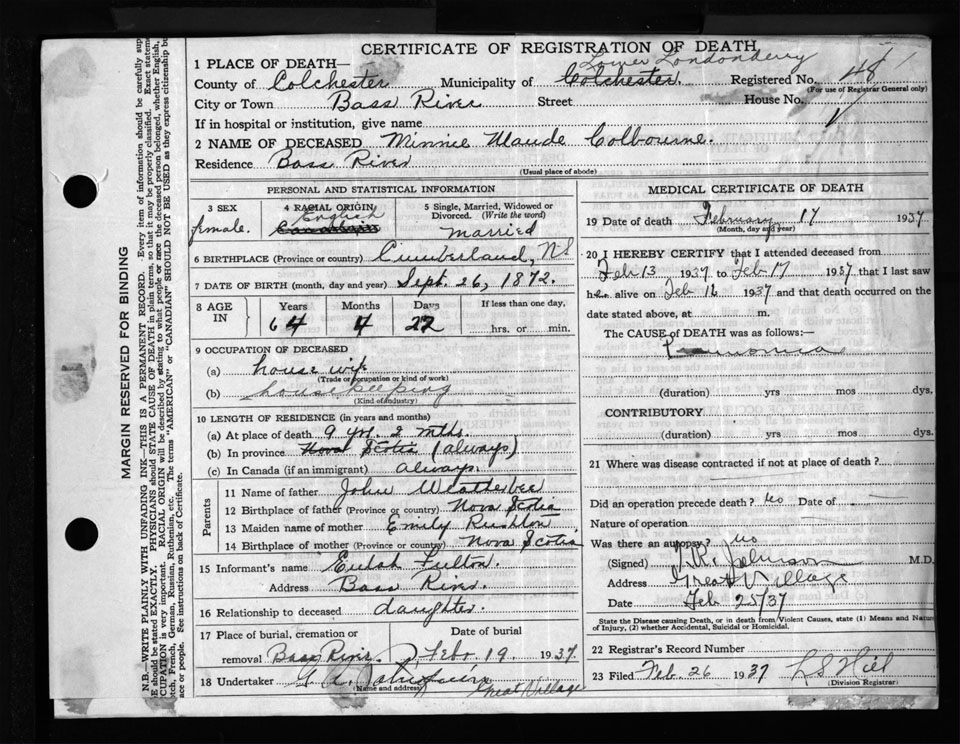 CERTIFICATE OF REGISTRATION OF DEATH
1 PLACE OF DEATH— Lower Londonderry
County of Colchester Municipality of Colchester. Registered No. 48
(For use of Registrar General only)
City or Town Bass River Street House No.
If in hospital or institution, give name
2 NAME OF DECEASED Minnie Maude Colbourne.
Residence Bass River
(Usual place of abode)
PERSONAL AND STATISTICAL INFORMATION
3 SEX female.
4 RACIAL ORIGIN English
Canadian
5 Single, Married, Widowed or Divorced. (Write the word)
married
6 BIRTHPLACE (Province or country) Cumberland, NS
7 DATE OF BIRTH (month, day and year) Sept. 26, 1872.
8 AGE IN Years Months Days If less than one day,
64 4 22 hrs. or min.
9 OCCUPATION OF DECEASED
(a) house wife
(Trade or occupation or kind of work)
(b) house keeping
(Kind of industry)
10 LENGTH OF RESIDENCE (in years and months)
(a) At place of death 9 yrs. 2 mths.
(b) In province Nova Scotia (always)
(c) In Canada (if an immigrant) always.
Parents
11 Name of father John Weatherbee
12 Birthplace of father (Province or country) Nova Scotia
13 Maiden name of mother Emily Rushton
14 Birthplace of mother (Province or country) Nova Scotia
15 Informant's name Eulah Fulton.
Address Bass River.
16 Relationship to deceased daughter.
17 Place of burial, cremation or removal Bass River. Date of burial Feb. 19. 1937.
18 Undertaker Great Village
(Name and address)
MEDICAL CERTIFICATE OF DEATH
19 Date of death February 17 1937
(Month, day and year)
20 I HEREBY CERTIFY that I attended deceased from
Feb 13 1937 to Feb 17 1937 that I last saw
her alive on Feb 16 1937 and that death occurred on the
date stated above, at m.
The CAUSE of DEATH was as follows:—
Pneumonia
(duration) yrs mos dys.
CONTRIBUTORY
(duration) yrs mos dys.
21 Where was disease contracted if not at place of death?
Did an operation precede death? no Date of
Nature of operation
Was there an autopsy? no
(Signed) Johnson M.D.
Address Great Village
Date Feb 25/37
State the Disease causing Death, or in death from Violent Causes, state (1) Means and Nature
of Injury, (2) whether Accidental, Suicidal or Homicidal.
22 Registrar's Record Number
23 Filed Feb. 26 1937 L S Hill
(Division Registrar)
MARGIN RESERVED FOR BINDING
N.B. WRITE PLAINLY WITH UNFADING INK—THIS IS A PERMANENT RECORD. Every item of information should be carefully sup
should be stated EXACTLY. PHYSICIANS should STATE CAUSE OF DEATH in plain terms, so that it may be properly classified. Exact stateme
CUPATION is very important. RACIAL ORIGIN will be described by stating to what people or race the deceased person belonged, whether English,
tch, French, German, Russian, Ruthenian, etc. The terms "AMERICAN" or "CANADIAN" SHOULD NOT BE USED as they express citizenship bu
ace or people. See instructions on back of Certificate.